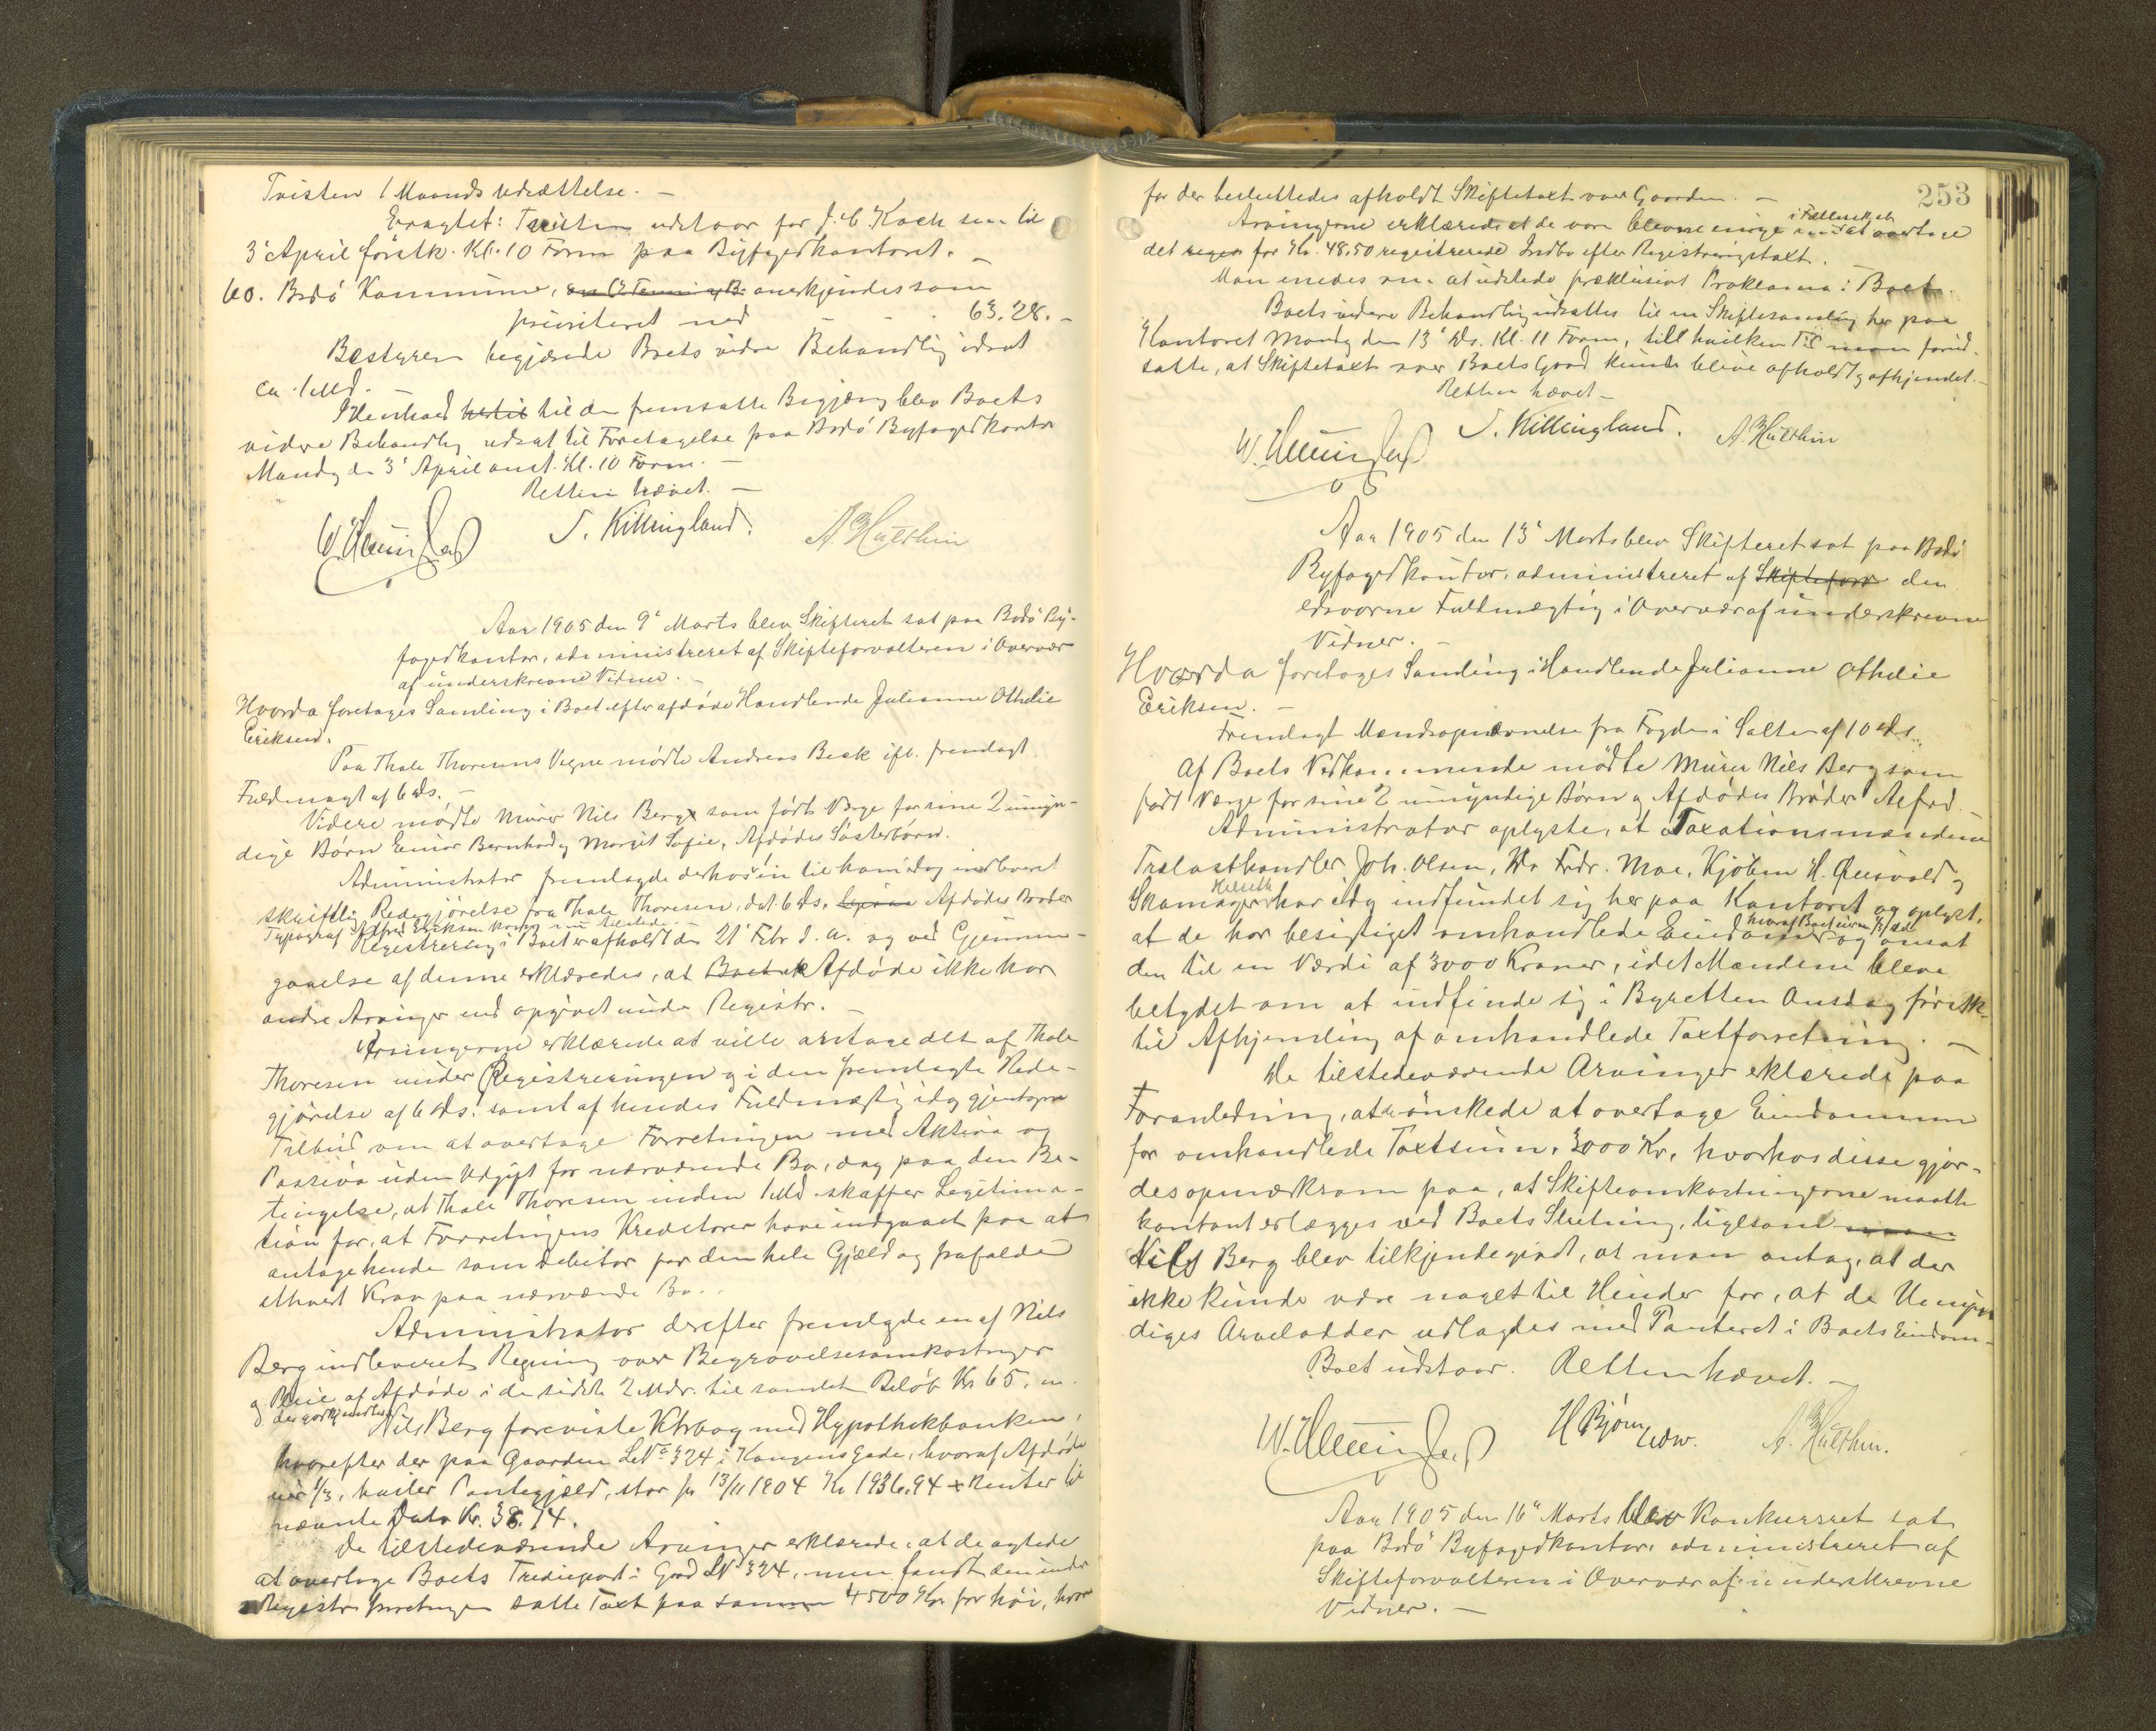 Tvisten 1 Maaneds Udsættelse. —
Eragtet: Tvisten udstaar for J. C. Koch sen til
3' April førstk. Kl. 10 Form paa Byfogedkontoret. —
60. Bodø Kommune, anerkjendes som
prioriteret med 63.28. —
Bestyreren begjærede Boets videre Behandling udsat
ca. 1 Md. —
I Henhold hertil til den fremsatte Begjæring blev Boets
videre Behandling udsat til Foretagelse paa Bodø Byfogedkontor
Mandag den 3' April anst. Kl. 10 Form. —
Retten hævet. —
J. Killingland. A. Hulthin
Aar 1905 den 9' Marts blev Skifteret sat paa Bodø By-
fogedkontor, administreret af Skifteforvalteren i Overvær
af underskrevne Vidner. —
Hvorda foretoges Samling i Boet efter afdøde Handlende Julianne Othelie
Eriksen.
Paa Thale Thoresens Vegne mødte Andreas Beck ifl. fremlagt
Fuldmagt af 6 ds. —
Videre mødte Murer Nils Berg som født Værge for sine 2 umyn-
dige Børn Einar Bernhard og Margit Sofie, Afdødes Søsterbørn.
Administrator fremlagde derhos in til ham idag indleveret
skriftlig Redegjørelse fra Thale Thoresen, dat. 6 ds. Afdødes Broder
Typograf Alfred Eriksen kom nu tilstede.
Registrering i Boet er afholdt den 21' Febr d. A. og ved Gjennem-
gaaelse af denne erklæredes, at Boet ik Afdøde ikke har
andre Arvinger end opgivet under Registr.
Arvingerne erklærede at ville antage det af Thale
Thoresen under Registreringen og i den fremlagte Rede-
gjørelse af 6 ds. samt af hendes Fuldmægtig idag gjentagne
Tilbud om at overtage Forretningen med Aktiva og
Passiva uden Udgift for nærværende Bo, dog paa den Be-
tingelse, at Thale Thoresen inden 1 Md skaffer Legitima-
tion for, at Forretningens Kreditorer have indgaaet paa at
antage hende som Debitor for den hele Gjæld og frafalde
ethvert Krav paa nærværende Bo.
Administrator derefter fremlagde en af Nils
Berg indleveret Regning over Begravelsesomkostninger
og Pleie af Afdøde i de sidste 2 Mdr. til samlet Beløb Kr 65,
der godkjendtes.
Nils Berg foreviste Ktrbog med Hypothekbanken,
hvorefter der paa Gaarden LNo 324 i Kongens Gade, hvoraf Afdøde
eier 1/3, hviler Pantegjæld, stor pr 13/11 1904 Kr 1936.94 + Renter til
nævnte Dato Kr. 38.74.
De tilstedeværende Arvinger erklærede, at de agtede
at overtage Boets Trediepart i Gaard LN 324, men fandt den under
Registr.forretningen satte Taxt paa samme 4500 Kr for høi, hvor
253
for der besluttedes afholdt Skiftetaxt over Gaarden. —
Arvingerne erklærede at de vare blevne enige om i Fællesskab at overtage
det for Kr. 48.50 registrerede Indbo efter Registreringstaxt.
Man enedes om at udstede præklusivt Proklama i Boet.
Boets videre Behandling udsattes til en Skiftesamling her paa
Kontoret Mandag den 13' ds. Kl. 11 Form, till hvilken Tid man forud-
satte, at Skiftetaxt over Boets Gaard kunde blive afholdt og afhjemlet. —
Retten hævet —
J. Killingland. A. Hulthin
Aar 1905 den 13' Marts blev Skifteret sat paa Bodø
Byfogedkontor, administreret af Skifteforv den
edsvorne Fuldmægtig i Overvær af underskrevne
Vidner. —
Hvorda foretoges Samling i Handlende Julianne Othelie
Eriksen. —
Fremlagt Mændsopnævnelse fra Fogden i Salten af 10 ds.
Af Boets Vedkommende mødte Murer Nils Berg som
født Værge for sine 2 umyndige Børn og Afdødes Broder Alfred.
Administrator oplyste, at Taxationsmændene
Trælasthandler Joh. Olsen, Fredr. Moe, Kjøbm H. og
Skomager Helseth har idag indfundet sig her paa Kontoret og oplyst,
at de har besigtiget omhandlede Eiendom hvoraf Boet eier en 1/3 del og ansat
den til en Værdi af 3000 Kroner, idet Mændene bleve
betydet om at indfinde sig i Byretten Onsdag førstk.
til Afhjemling af omhandlede Taxtforretning. —
De tilstedeværende Arvinger erklærede paa
Foranledning, at de ønskede at overtage Eiendommen
for omhandlede Taxtsum, 3000 Kr, hvorhos disse gjor-
des opmærksom paa, at Skifteomkostningerne maatte
kontant erlægges ved Boets Slutning, ligesom man
Nils Berg blev tilkjendegivet, at man antog, at der
ikke kunde være noget til Hinder for, at de Umyn-
diges Arvelodder udlagdes med Panteret i Boets Eiendom. —
Boet udstaar. Retten hævet. —
H Bjørn A. Hulthin.
Aar 1905 den 16' Marts blev Konkursret sat
paa Bodø Byfogedkontor, administreret af
Skifteforvalteren i Overvær af underskrevne
Vidner. —